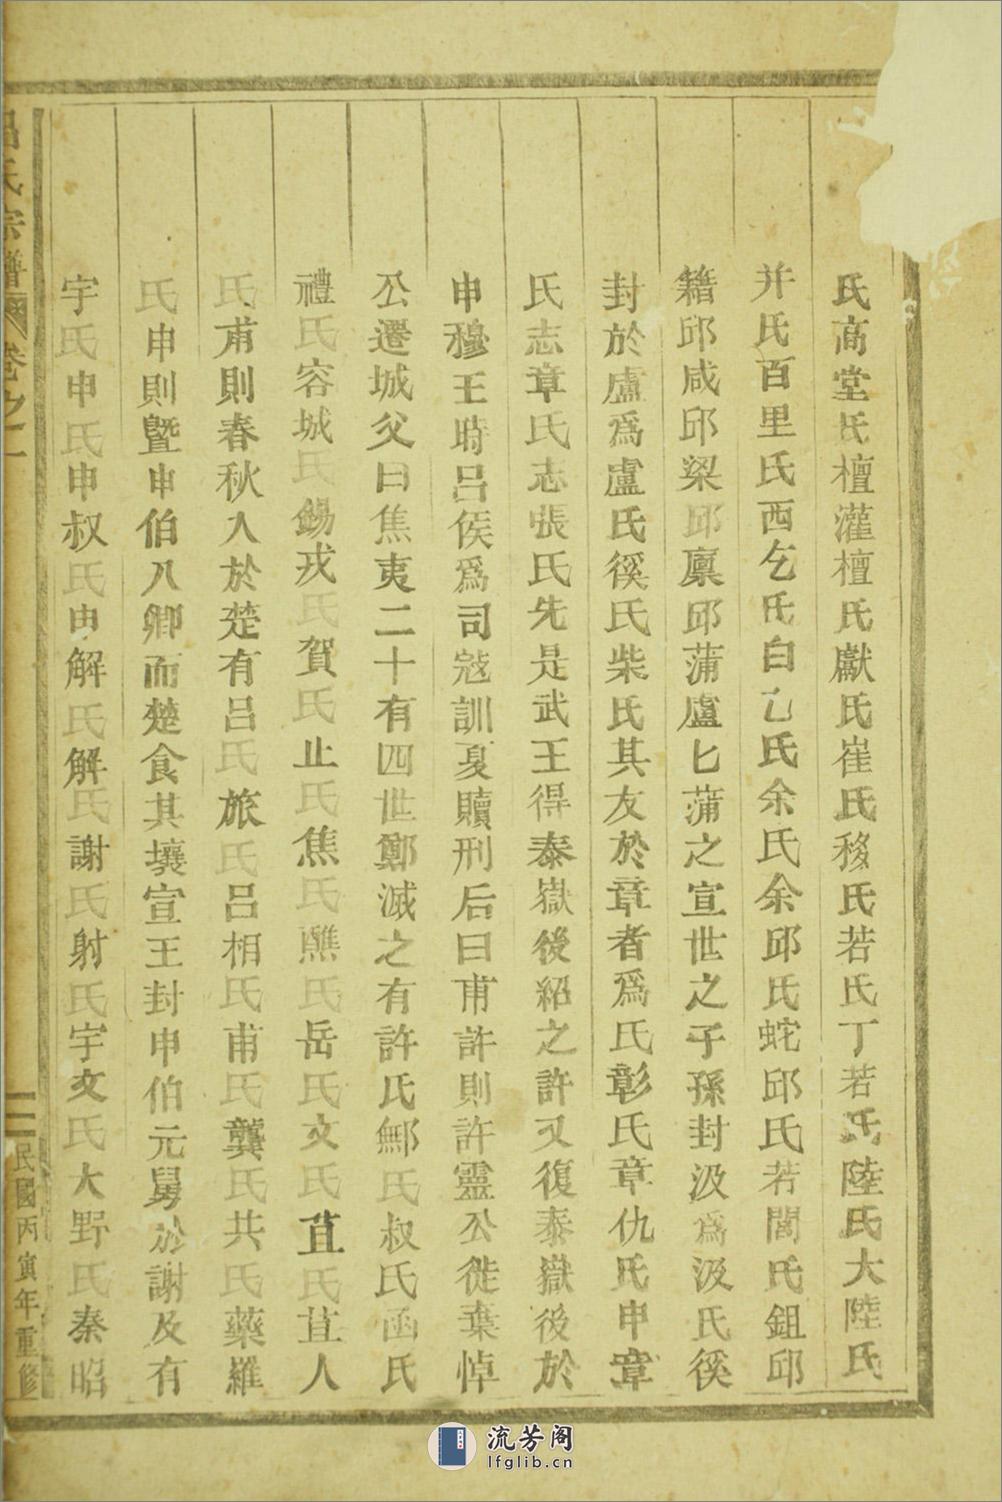 氏高堂氏檀灌檀氏獻氏崔氏移氏若氏丁若氏陸氏大陸氏
并氏百里氏西乞氏白乙氏余氏余邱氏蛇邱氏若閭氏鉏邱
籍邱咸邱梁邱廪邱蒲盧匕蒲之宣世之子孫封汲爲汲氏徯
封於盧爲盧氏徯氏柴氏其友於章者爲氏彰氏章仇氏申章
氏志章氏志張氏先是武王得泰嶽後紹之許又復泰嶽後於
申穆王時呂侯爲司寇訓夏贖刑后曰甫許則許靈公徙葉悼
公遷城父曰焦夷二十有四世鄭滅之有許氏鄦氏叔氏函氏
禮氏容城氏錫戎氏賀氏止氏焦氏譙氏岳氏文氏苴氏苴人
氏甫則春秋入於楚有呂氏旅氏呂相氏甫氏龔氏共氏藥羅
氏申則暨申伯入卿而楚食其壤宣王封申伯元舅於謝及有
宇氏申氏申叔氏申解氏解氏謝氏射氏宇文氏大野氏秦昭
呂氏宗譜 卷之一 二 民國丙寅年重修
流芳阁
lfglib.cn